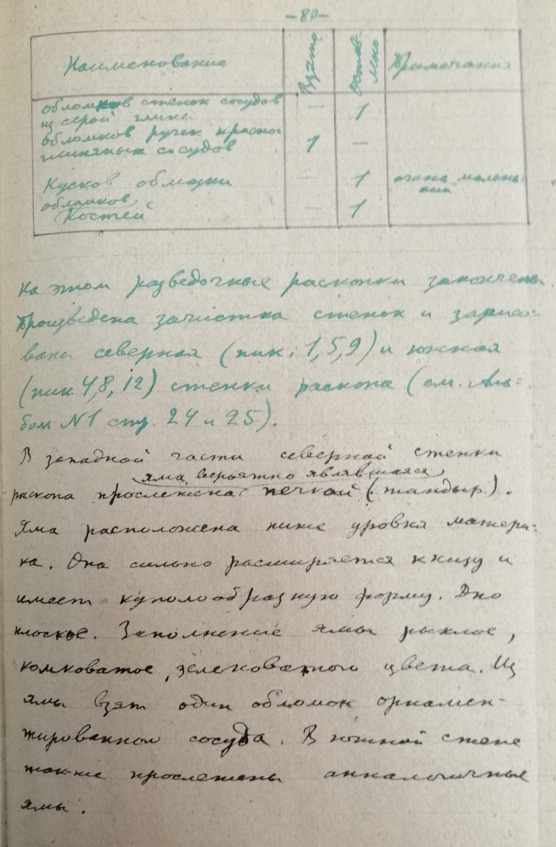 -80-
Наименование Взято Остав- лено Примечания
обломков стенок сосудов — 1
из серой глины
обломков ручек красно- 1 —
глиняных сосудов
Кусков обмазки — 1 очень малень-
кие
обломков
Костей 1
На этом разведочные раскопки закончены.
Произведена зачистка стенок и зарисо-
ваны северная (пик. 1,5,9) и южная
(пик. 4,8,12) стенки раскопа (см. Аль-
бом N1 стр. 24 и 25).
В западной части северной стенки
яма, вероятно являвшаяся
раскопа прослежена печкой (тандыр).
Яма расположена ниже уровня матери-
ка. Она сильно расширяется книзу и
имеет куполообразную форму. Дно
плоское. Заполнение ямы рыхлое,
комковатое, зеленоватого цвета. Из
ямы взят один обломок орнамен-
тированного сосуда. В южной стене
также прослежены анналогичные
ямы.